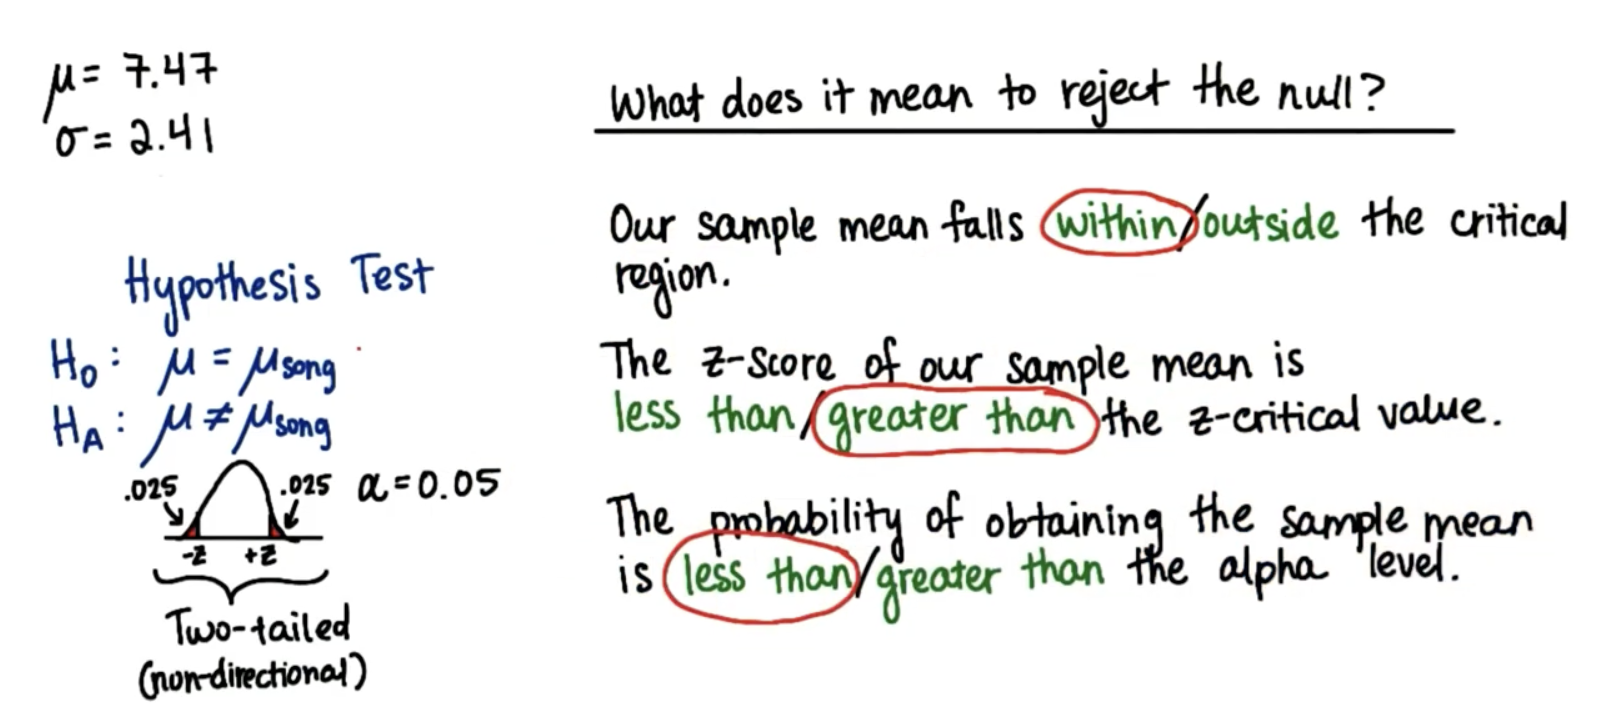 μ = 7.47
σ = 2.41
Hypothesis Test
H₀: μ = μsong
Hₐ: μ ≠ μsong
.025 .025 α = 0.05
-z +z
Two-tailed
(non-directional)
What does it mean to reject the null?
Our sample mean falls within/outside the critical
region.
The z-score of our sample mean is
less than/greater than the z-critical value.
The probability of obtaining the sample mean
is less than/greater than the alpha level.